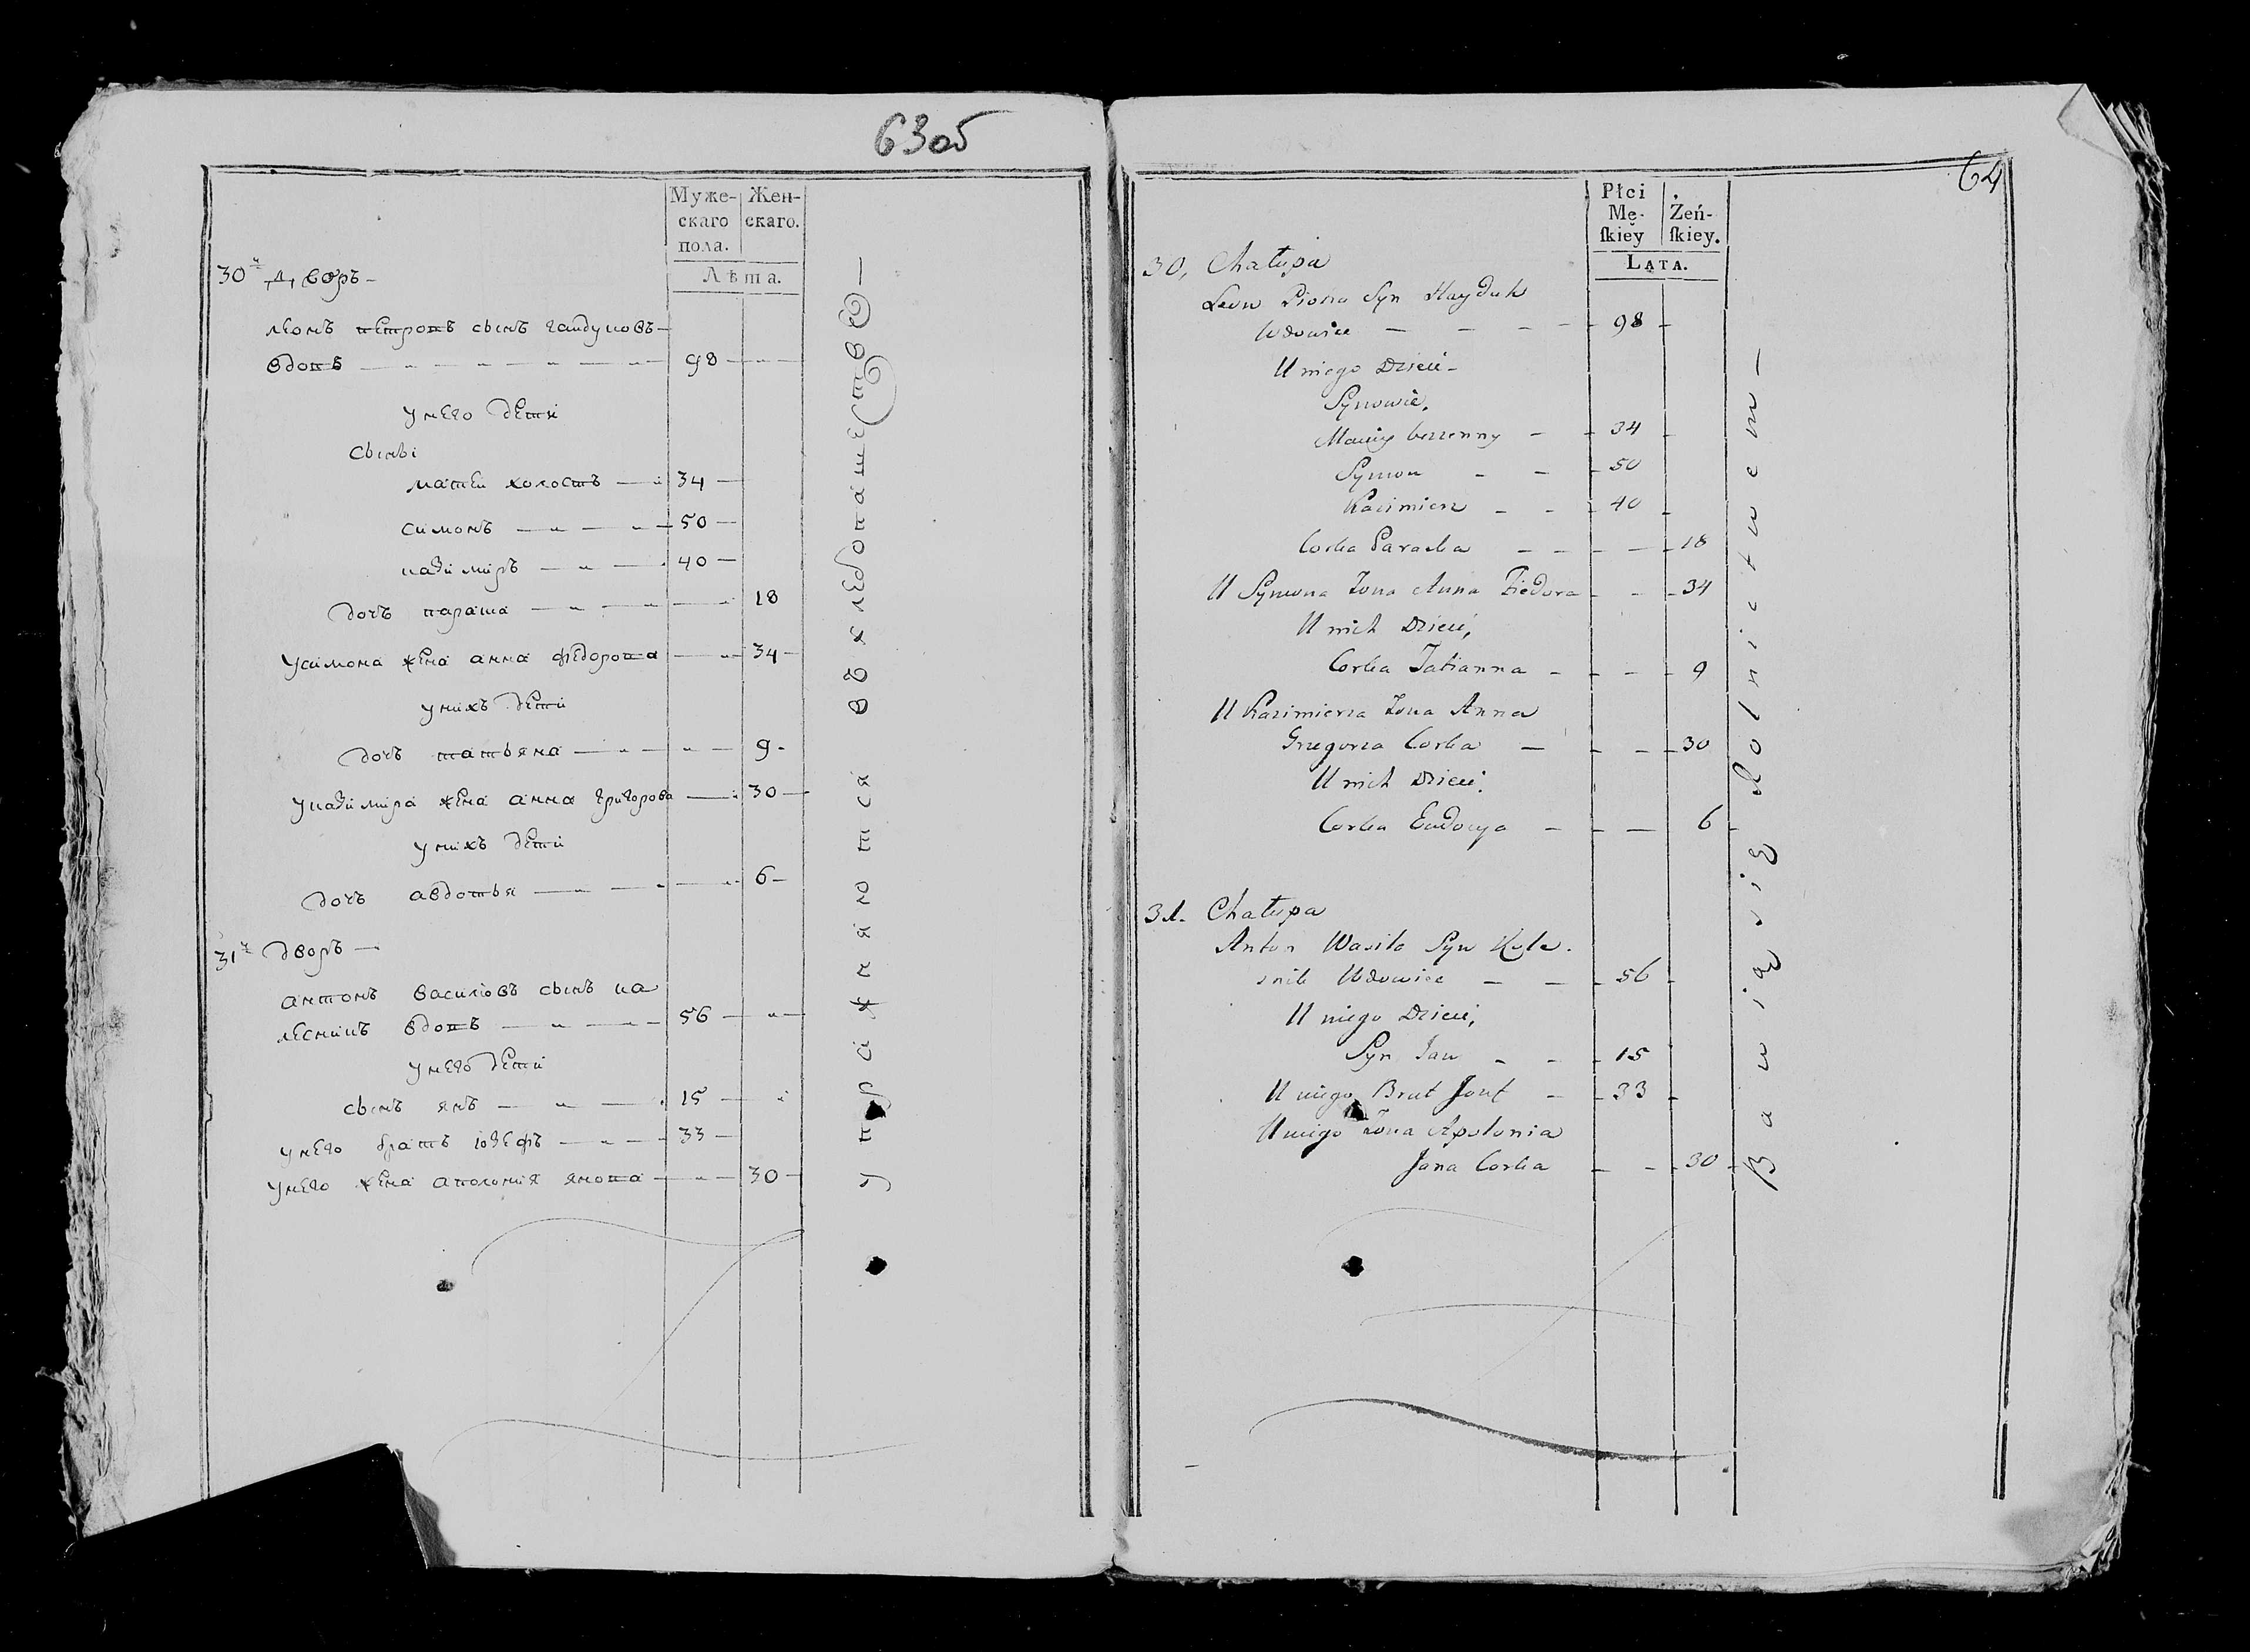 63об
Муже-
скаго
пола.
Жен-
скаго.
Лѣта.
30й Дворъ —
леонъ петровъ сынъ гайдуковъ —
вдовъ — 98 —
у него дети
сыны
матей холостъ — 34 —
симонъ — 50 —
казимиръ — 40 —
дочъ параша — 18
у симона жена анна федорова — 34 —
у нихъ дети
дочъ татьяна — 9 -
у казимира жена анна григорова — 30 —
у нихъ дети
дочъ авдотья — 6 —
31й дворъ —
антонъ василювъ сынъ ка
лесникъ вдовъ — 56 —
у него дети
сынъ янъ — 15 —
у него братъ юзефъ — 33 —
у него жена аполония янова — 30 —
упражняются въ хлебопашестве —
64
Płci
Mę-
ſkieỹ
Żeń-
ſkiey.
LĄTA.
30, Chałupa
Leon Piotra Syn Hayduk
Wdowiec — 98 -
U niego Dzieci -
Synowie,
Maciey bezzenny - 34 -
Symon - 50
Kazimierz - 40 -
Corka Paraska - 18
U Symona Zona Anna Fiedora - 34
U nich Dzieci,
Corka Tatianna - 9
U Kazimierza Zona Anna
Grzegorza Corka — 30
U nich Dzieci:
Corka Eudocya - 6 -
31. Chałupa
Anton Wasila Syn Kole-
snik Wdowiec - 56 -
U niego Dzieci,
Syn Jan - 15
U niego Brat Jozef - 33 -
U niego Zona Apolonia
Jana Corka - 30 -
Bawią się Rolnictwem —